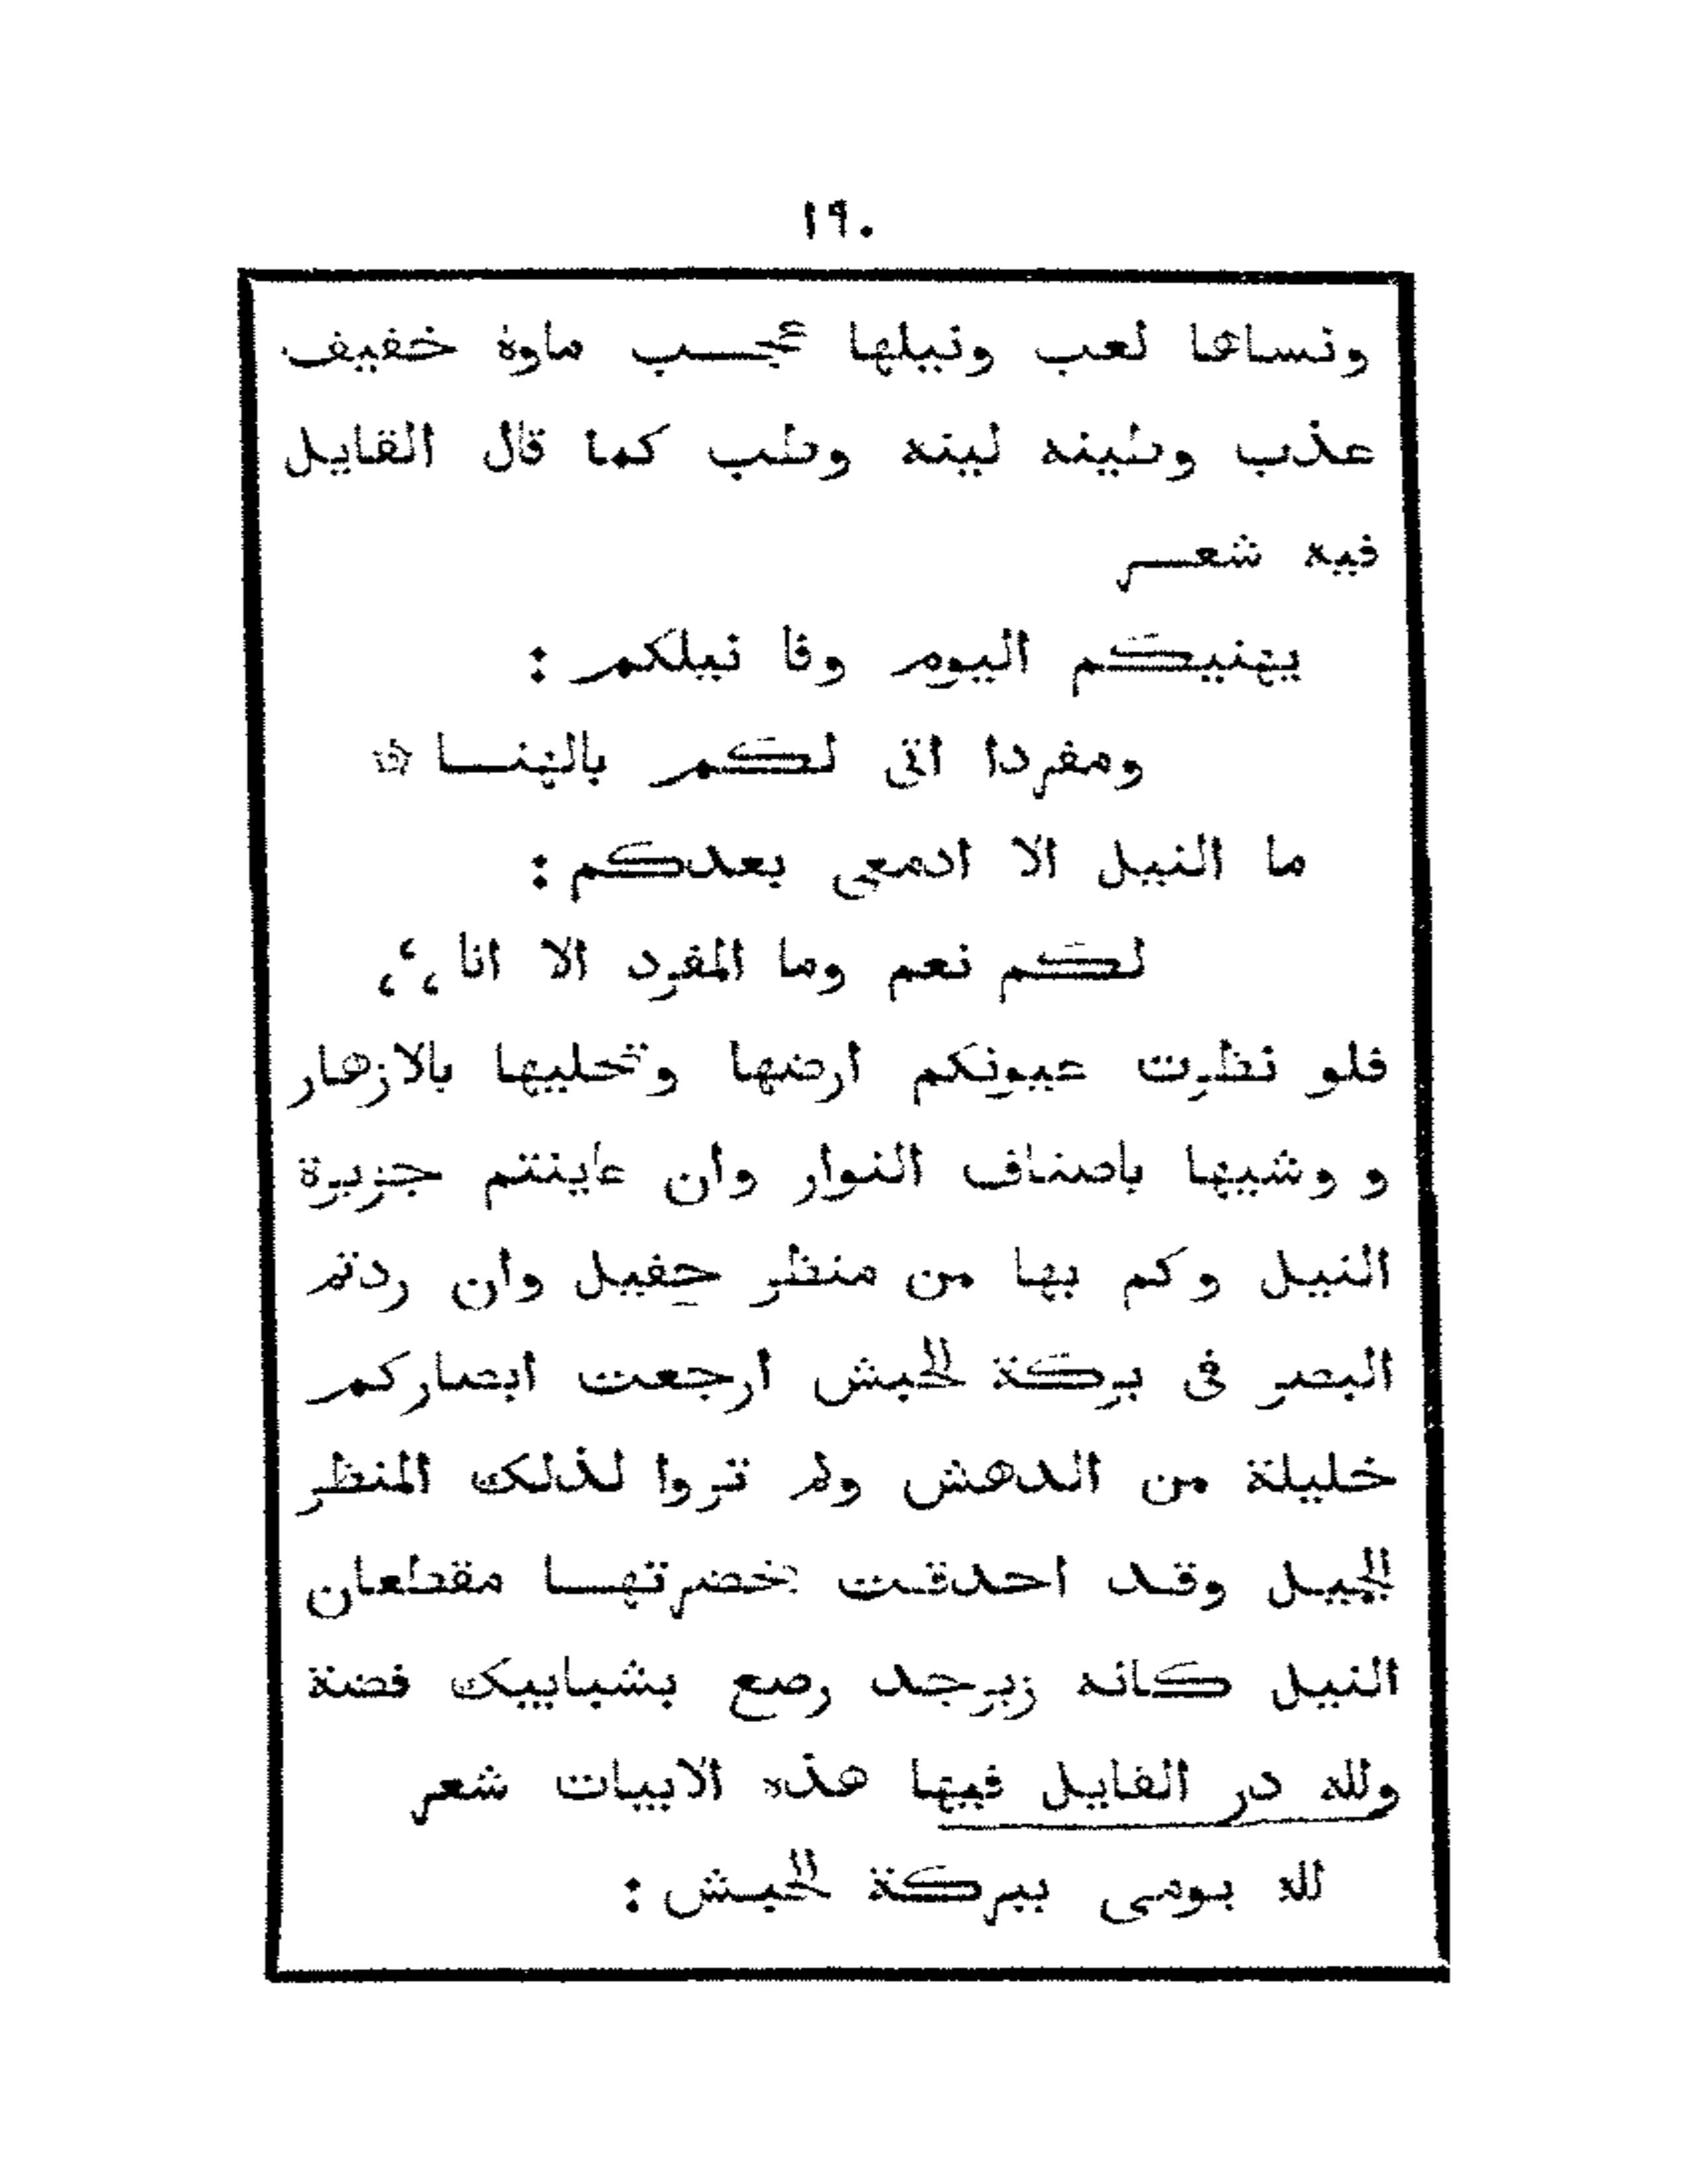 ١٩٠
ونساءها لعب ونيلها عجب ماوه خفيف
عذب وطينه لينه وطب كما قال القايل
فيه شعر
يهنيكم اليوم وفا نيلكم :
ومفردا اتى لكم بالهنا ۞
ما النيل الا ادمعى بعدكم :
لكم نعم وما المفرد الا انا ،‘،
فلو نظرت عيونكم ارضها وتحليها بالازهار
و وشيها باصناف النوار وان عاينتم جزيرة
النيل وكم بها من منظر حفيل وان ردتم
البصر فى بركة الحبش ارجعت ابصاركم
خليلة من الدهش ولم تروا لذلك المنظر
الجميل وقد احدقت بخضرتها مقطعان
النيل كانه زبرجد رصع بشبابيك فضة
ولله در القايل فيها هذه الابيات شعر
لله يومى ببركة الحبش :